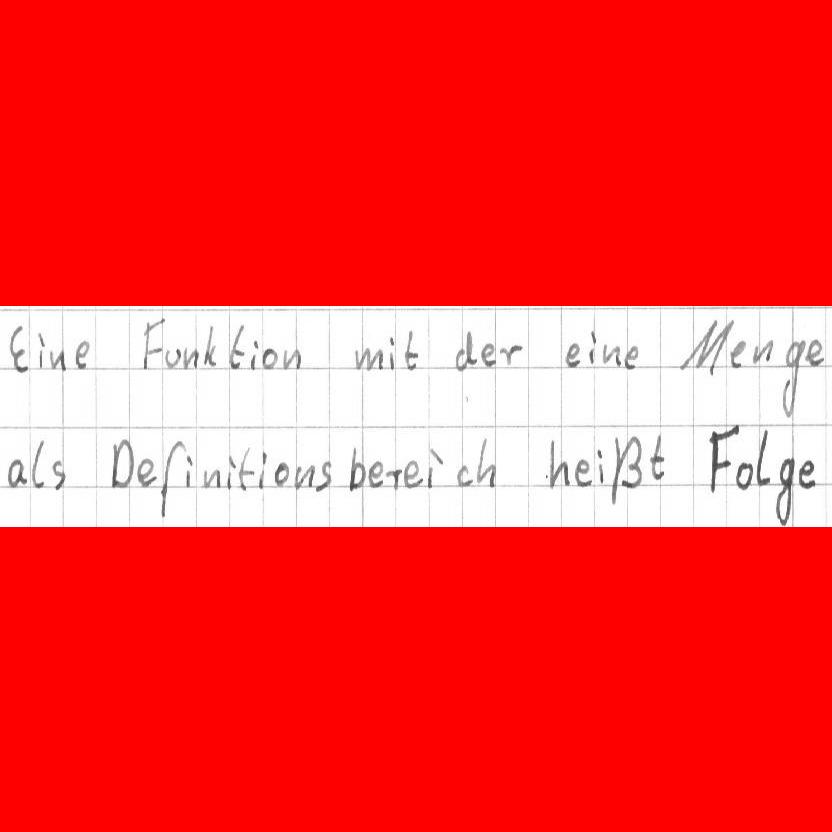 Eine Funktion mit der eine Menge
als Definitionsbereich heißt Folge